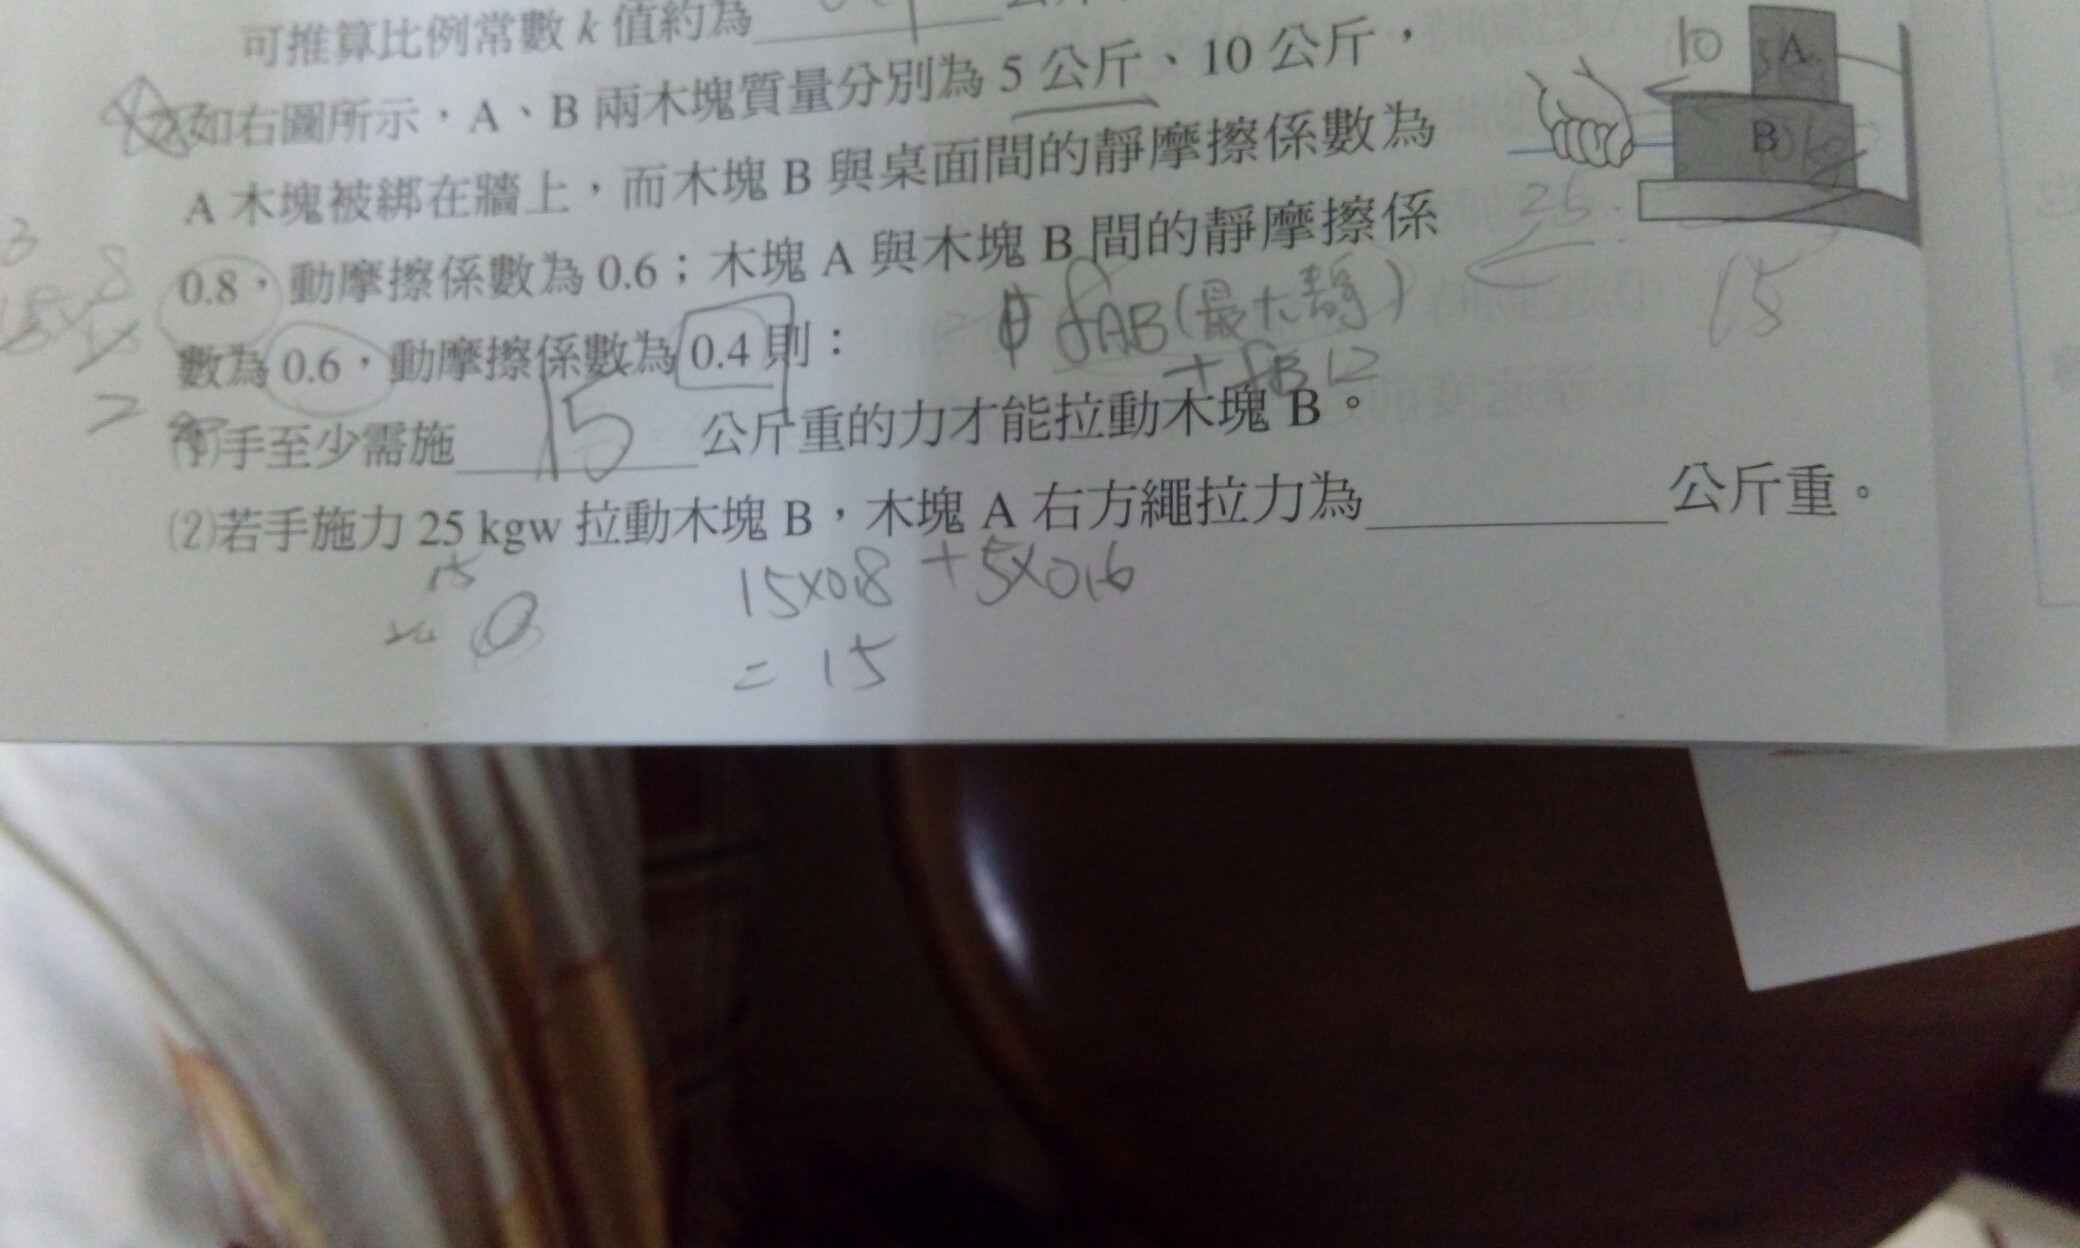 可推算比例常數 k 值約為
如右圖所示，A、B 兩木塊質量分別為 5 公斤、10 公斤，
A 木塊被綁在牆上，而木塊 B 與桌面間的靜摩擦係數為
0.8，動摩擦係數為 0.6；木塊 A 與木塊 B 間的靜摩擦係
數為 0.6，動摩擦係數為 0.4 則：
fAB(最大靜)
+ fB 12
(1)手至少需施 15 公斤重的力才能拉動木塊 B。
(2)若手施力 25 kgw 拉動木塊 B，木塊 A 右方繩拉力為 公斤重。
15×0.8 + 5×0.6
= 15
10
A
B
25
15